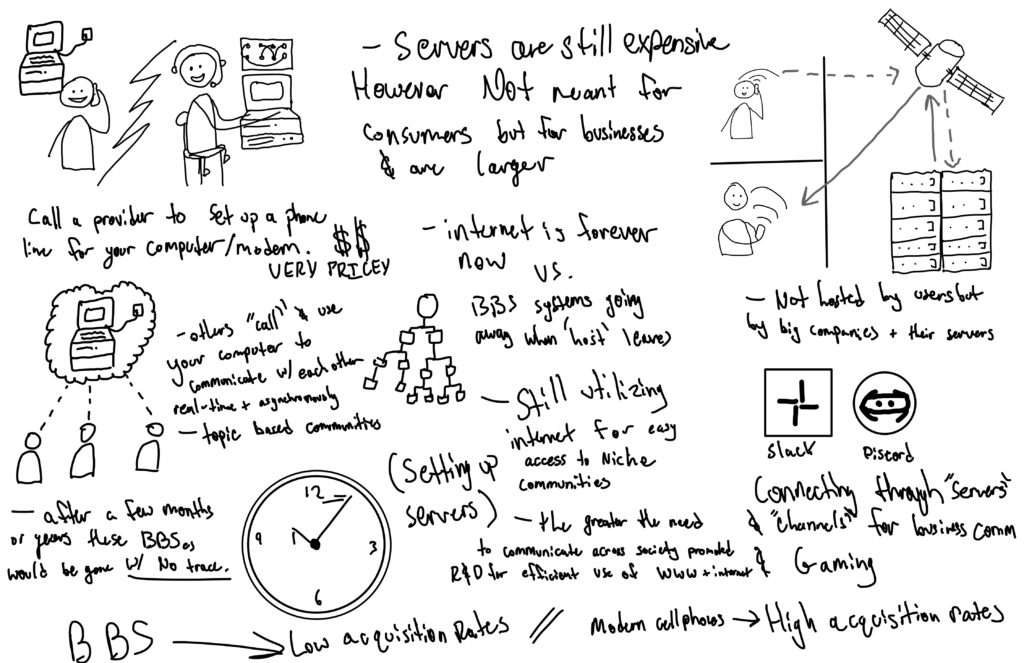 - Servers are still expensive
However Not meant for
consumers but for businesses
& are larger
Call a provider to set up a phone
line for your computer/modem. $$
VERY PRICEY
- others "call" & use
your computer to
communicate w/ each other
real-time + asynchronously
- topic based communities
- after a few months
or years these BBSes
would be gone w/ No trace.
- internet is forever
now vs.
BBS systems going
away when 'host' leaves
- Still utilizing
internet for easy
access to Niche
communities
(Setting up
servers)
12
3
6
9
- the greater the need
to communicate across society promoted
R&D for efficient use of WWW + internet
- Not hosted by users but
by big companies + their servers
Slack
Discord
Connecting through "servers"
& "channels" for business comm
& Gaming
BBS → Low acquisition Rates // Modern cellphones → High acquisition rates